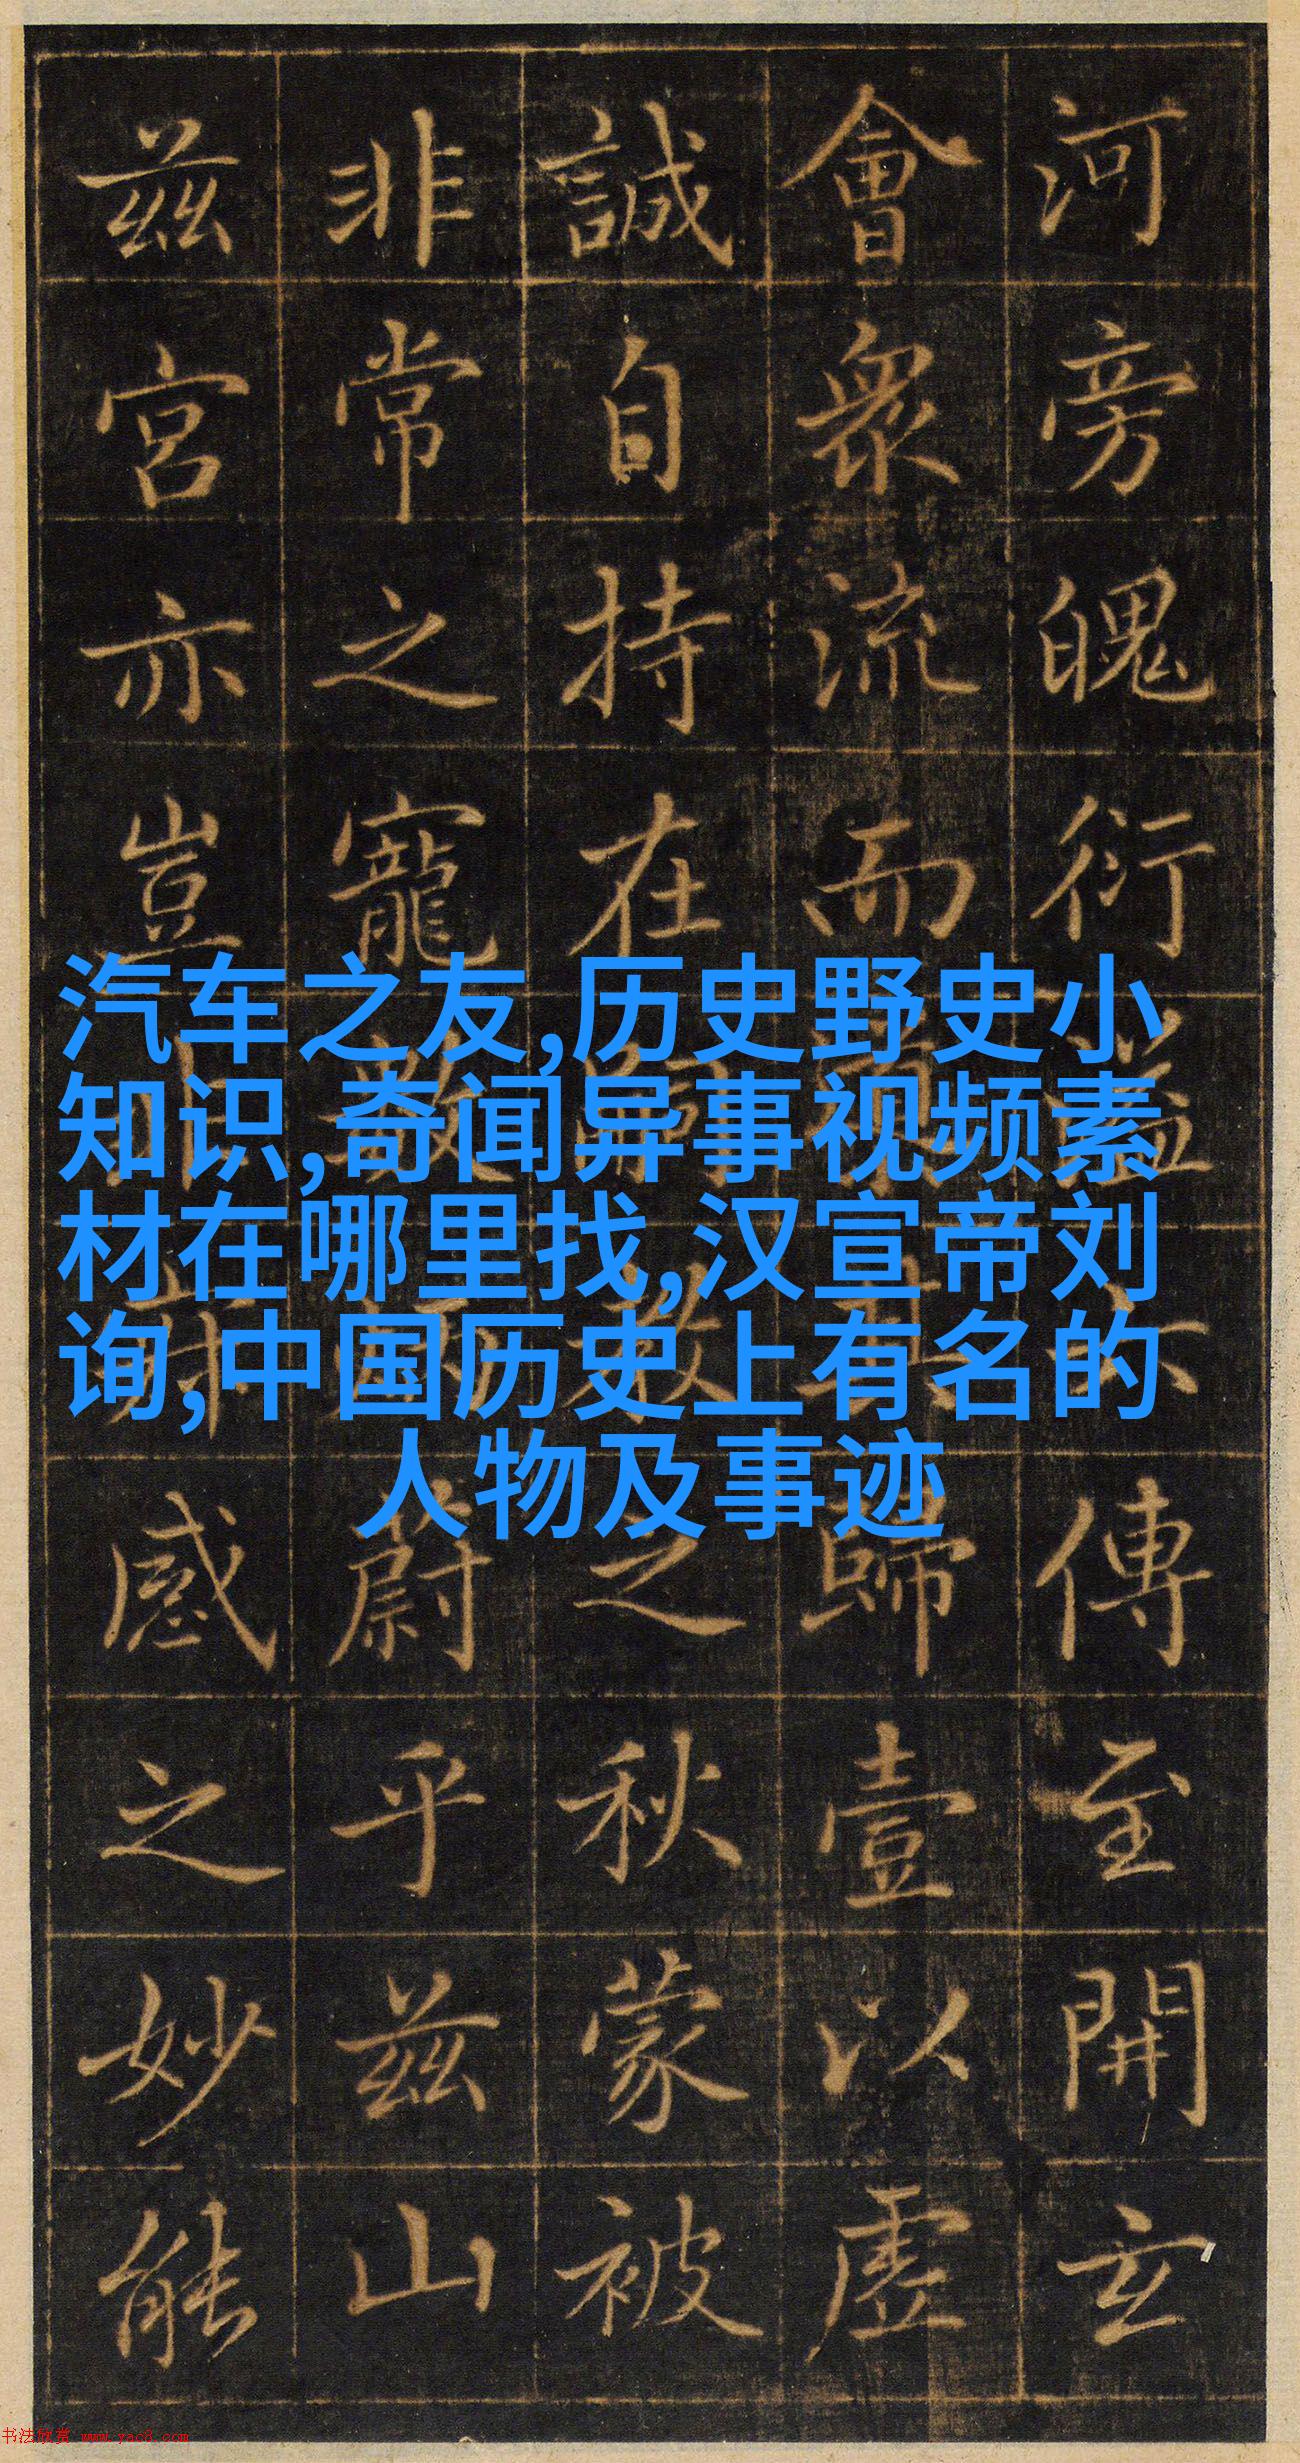 河旁魄衍傳至開玄
會衆流而歸壹以虛
誠自持在之秋蒙被
非常之寵蔚乎茲山
茲宮亦豈感之妙能
汽车之友,历史野史小
知识,奇闻异事视频素
材在哪里找,汉宣帝刘
询,中国历史上有名的
人物及事迹
书法欣赏 www.yac8.com